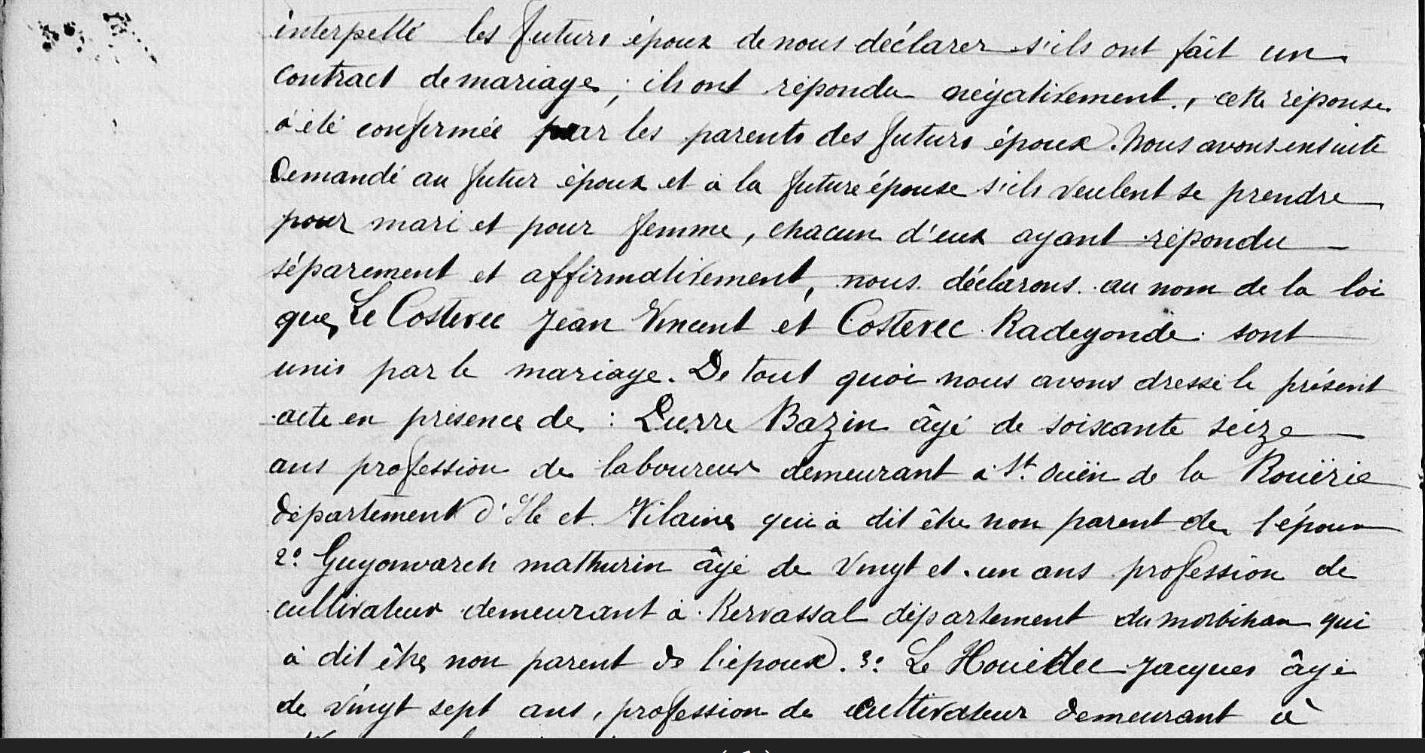 interpellé les futurs époux de nous déclarer s'ils ont fait un
contract de mariage, ils ont répondu négativement, cette réponse
a été confirmée par les parents des futurs époux. Nous avons ensuite
demandé au futur époux et à la future épouse s'ils veulent se prendre
pour mari et pour femme, chacun d'eux ayant répondu
séparement et affirmativement, nous déclarons au nom de la loi
que Le Costevec Jean Vincent et Costevec Radegonde sont
unis par le mariage. De tout quoi nous avons dressé le présent
acte en présence de : Pierre Bazin âgé de soixante seize
ans profession de laboureur demeurant à St Ouën de la Rouërie
département d'Ile et Vilaine qui a dit être non parent de l'époux
2° Guyonvarch mathurin âgé de vingt et un ans profession de
cultivateur demeurant à Kervassal département du morbihan qui
a dit être non parent de l'époux. 3° Le Jacques âgé
de vingt sept ans, profession de cultivateur demeurant à